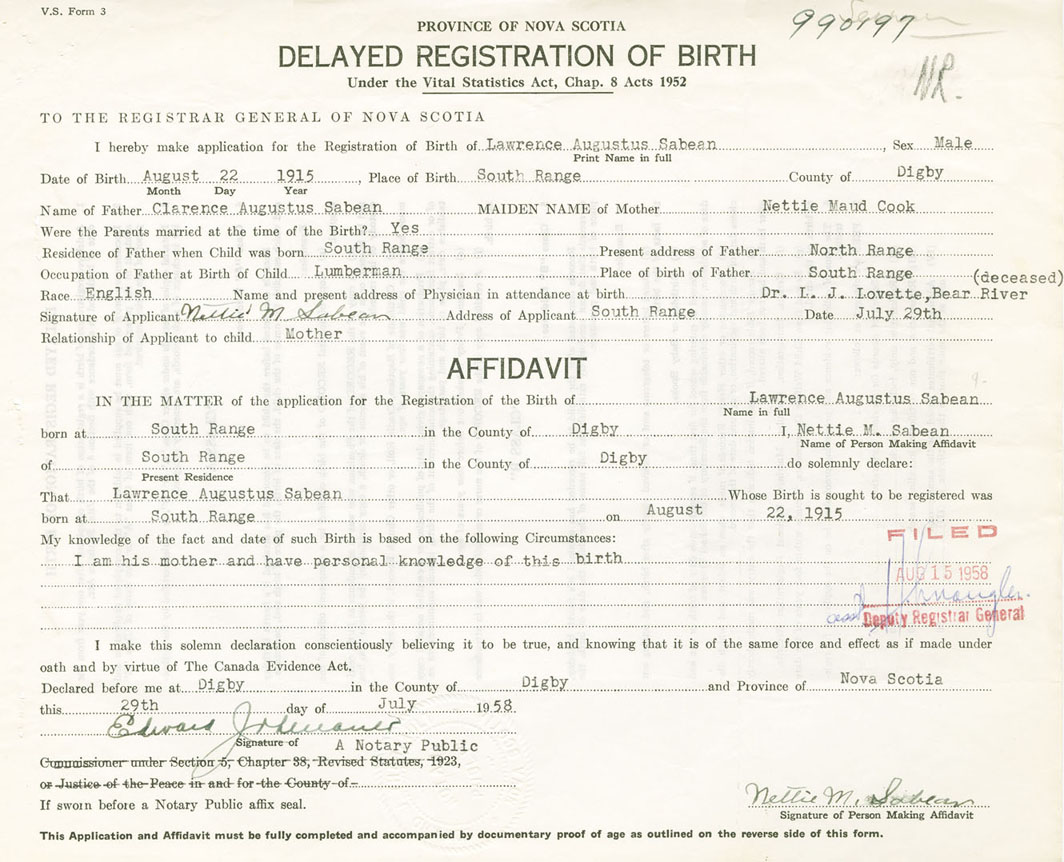 V.S. Form 3
990197
PROVINCE OF NOVA SCOTIA
DELAYED REGISTRATION OF BIRTH
Under the Vital Statistics Act, Chap. 8 Acts 1952
NR.
TO THE REGISTRAR GENERAL OF NOVA SCOTIA
I hereby make application for the Registration of Birth of Lawrence Augustus Sabean, Sex Male
Print Name in full
Date of Birth August 22 1915, Place of Birth South Range County of Digby
Month Day Year
Name of Father Clarence Augustus Sabean MAIDEN NAME of Mother Nettie Maud Cook
Were the Parents married at the time of the Birth? Yes
Residence of Father when Child was born South Range Present address of Father North Range
Occupation of Father at Birth of Child Lumberman Place of birth of Father South Range (deceased)
Race English Name and present address of Physician in attendance at birth Dr. L. J. Lovette, Bear River
Signature of Applicant Nettie M Sabean Address of Applicant South Range Date July 29th
Relationship of Applicant to child Mother
AFFIDAVIT
IN THE MATTER of the application for the Registration of the Birth of Lawrence Augustus Sabean
Name in full
born at South Range in the County of Digby I, Nettie M. Sabean
Name of Person Making Affidavit
of South Range in the County of Digby do solemnly declare:
Present Residence
That Lawrence Augustus Sabean Whose Birth is sought to be registered was
born at South Range on August 22, 1915
My knowledge of the fact and date of such Birth is based on the following Circumstances:
FILED
I am his mother and have personal knowledge of this birth
AUG 15 1958
Deputy Registrar General
I make this solemn declaration conscientiously believing it to be true, and knowing that it is of the same force and effect as if made under
oath and by virtue of The Canada Evidence Act.
Declared before me at Digby in the County of Digby and Province of Nova Scotia
this 29th day of July 1958
Edward
Signature of A Notary Public
Commissioner under Section 5, Chapter 38, Revised Statutes, 1923,
or Justice of the Peace in and for the County of
If sworn before a Notary Public affix seal.
Nettie M. Sabean
Signature of Person Making Affidavit
This Application and Affidavit must be fully completed and accompanied by documentary proof of age as outlined on the reverse side of this form.